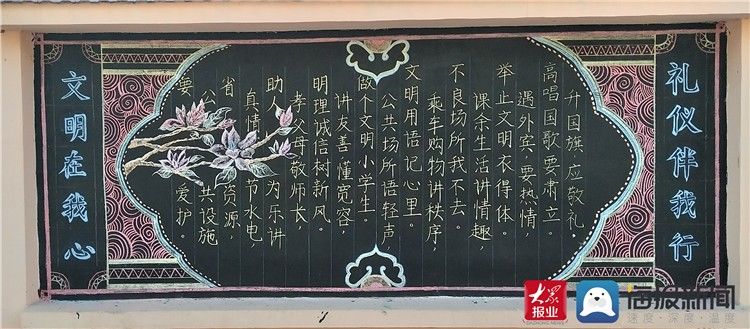 礼仪伴我行
升国旗,应敬礼
高唱国歌要肃立。
遇外宾,要热情,
举止文明衣得体。
课余生活讲情趣,
不良场所我不去。
乘车购物讲秩序,
文明用语记心里。
公共场所语轻声
做个文明小学生.
讲友善懂宽容,
明理诚信树新风。
孝父母敬师长,
助人为乐讲
真情节水电
省资源,
公共设施
要爱护。
文明在我心
大众报业
DAZHONG NEWS
海报新闻
速度·深度·温度